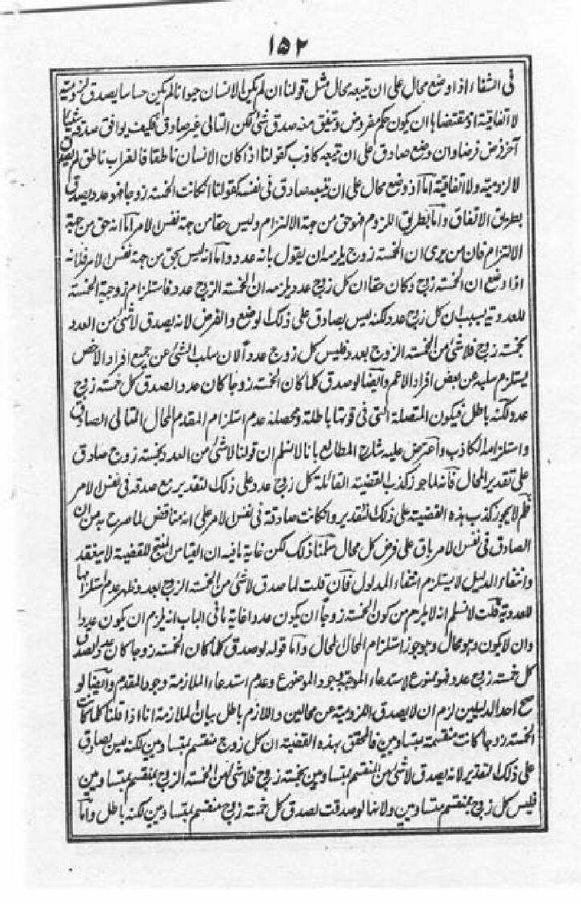 ١٥٢
فى الشفاء اذا وضع محال على ان تبعه محال مثل قولنا ان لم يكن الانسان حيوانا لم يكن حساسا يصدق لزومية
لا اتفاقية اذ مقتضاها ان يكون حكم مفروض ويتفق منه صدق شئ لكن التالى غير صادق فكيف يوافق صدقه شيئا
آخر فرض فرضا وان وضع صادق على ان تبعه كاذب كقولنا اذا كان الانسان ناطقا فالغراب ناطق لم يصدق
لا لزومية ولا اتفاقية اما اذا وضع محال على ان تبعه صادق فى نفسه كقولنا ان كانت الخمسة زوجا فهو عدد يصدق
بطريق الاتفاق واما بطريق اللزوم فهو حق من جهة الالتزام وليس حقا من جهة نفس الامر اما انه حق من جهة
الالتزام فان من يرى ان الخمسة زوج يلزمه ان يقول بانه عدد واما انه ليس بحق من جهة نفس الامر فلانه
اذا وضع ان الخمسة زوج وكان حقا ان كل زوج عدد يلزمه ان الخمسة الزوج عدد فاستلزام زوجية الخمسة
للعددية بسبب ان كل زوج عدد لكنه ليس بصادق على ذلك الوضع والفرض لانه يصدق لا شئ من العدد
بخمسة زوج فلا شئ من الخمسة الزوج بعدد فليس كل زوج عددا لان سلب الشئ عن جميع افراد الاخص
يستلزم سلبه عن بعض افراد الاعم وايضا لو صدق كلما كان الخمسة زوجا كان عددا لصدق كل خمسة زوج
عدد لكنه باطل فيكون المتصلة التى فى قوتها باطلة ومحصله عدم استلزام المقدم المحال التالى الصادق
واستلزامه الكاذب واعترض عليه شارح المطالع بانا لا نسلم ان قولنا لا شئ من العدد بخمسة زوج صادق
على تقدير المحال فانه لما جوز كذب القضية القائلة كل زوج عدد على ذلك التقدير مع صدقه فى نفس الامر
فلم لا يجوز كذب هذه القضية على ذلك التقدير وان كانت صادقة فى نفس الامر على انه مناقض لما صرح به من ان
الصادق فى نفس الامر باق على فرض كل محال سلمنا ذلك لكن غاية ما فيه ان القياس المنتج للقضية لا ينعقد
وانتفاء الدليل لا يستلزم انتفاء المدلول فان قلت لما صدق لا شئ من الخمسة الزوج بعدد وظهر عدم استلزامها
للعددية قلت لا نسلم انه لا يلزم من كون الخمسة زوجا ان يكون عددا غاية ما فى الباب انه يلزم ان يكون عددا
وان لا يكون وهو محال ويجوز استلزام المحال للمحال واما قوله لو صدق كلما كان الخمسة زوجا كان عددا لصدق
كل خمسة زوج عدد فممنوع لاستدعاء الموجبة وجود الموضوع وعدم استدعاء الملازمة وجود المقدم وايضا لو
صح احد الدليلين لزم ان لا يصدق اللزومية عن محالين واللازم باطل بيان الملازمة انا اذا قلنا كلما كانت
الخمسة زوجا كانت منقسمة بمتساويين فالمحقق بهذه القضية ان كل زوج منقسم بمتساويين لكنه ليس بصادق
على ذلك التقدير لانه يصدق لا شئ من المنقسم بمتساويين بخمسة زوج فلا شئ من الخمسة الزوج بمنقسم بمتساويين
فليس كل زوج بمنقسم بمتساويين ولانها لو صدقت لصدق كل خمسة زوج منقسم بمتساويين لكنه باطل واما